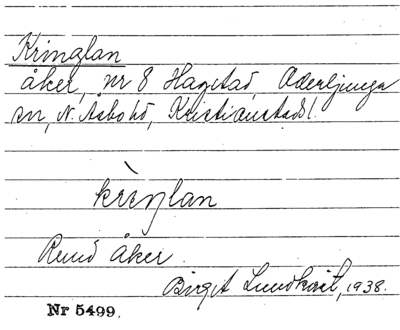 Kringlan
åker, nr 8 Hagstad, Oderljunga
sn, N. Åsbo hd, Kristianstads l.
krìŋlan
Rund åker.
Birgit Lundkvist, 1938.
Nr 5499.